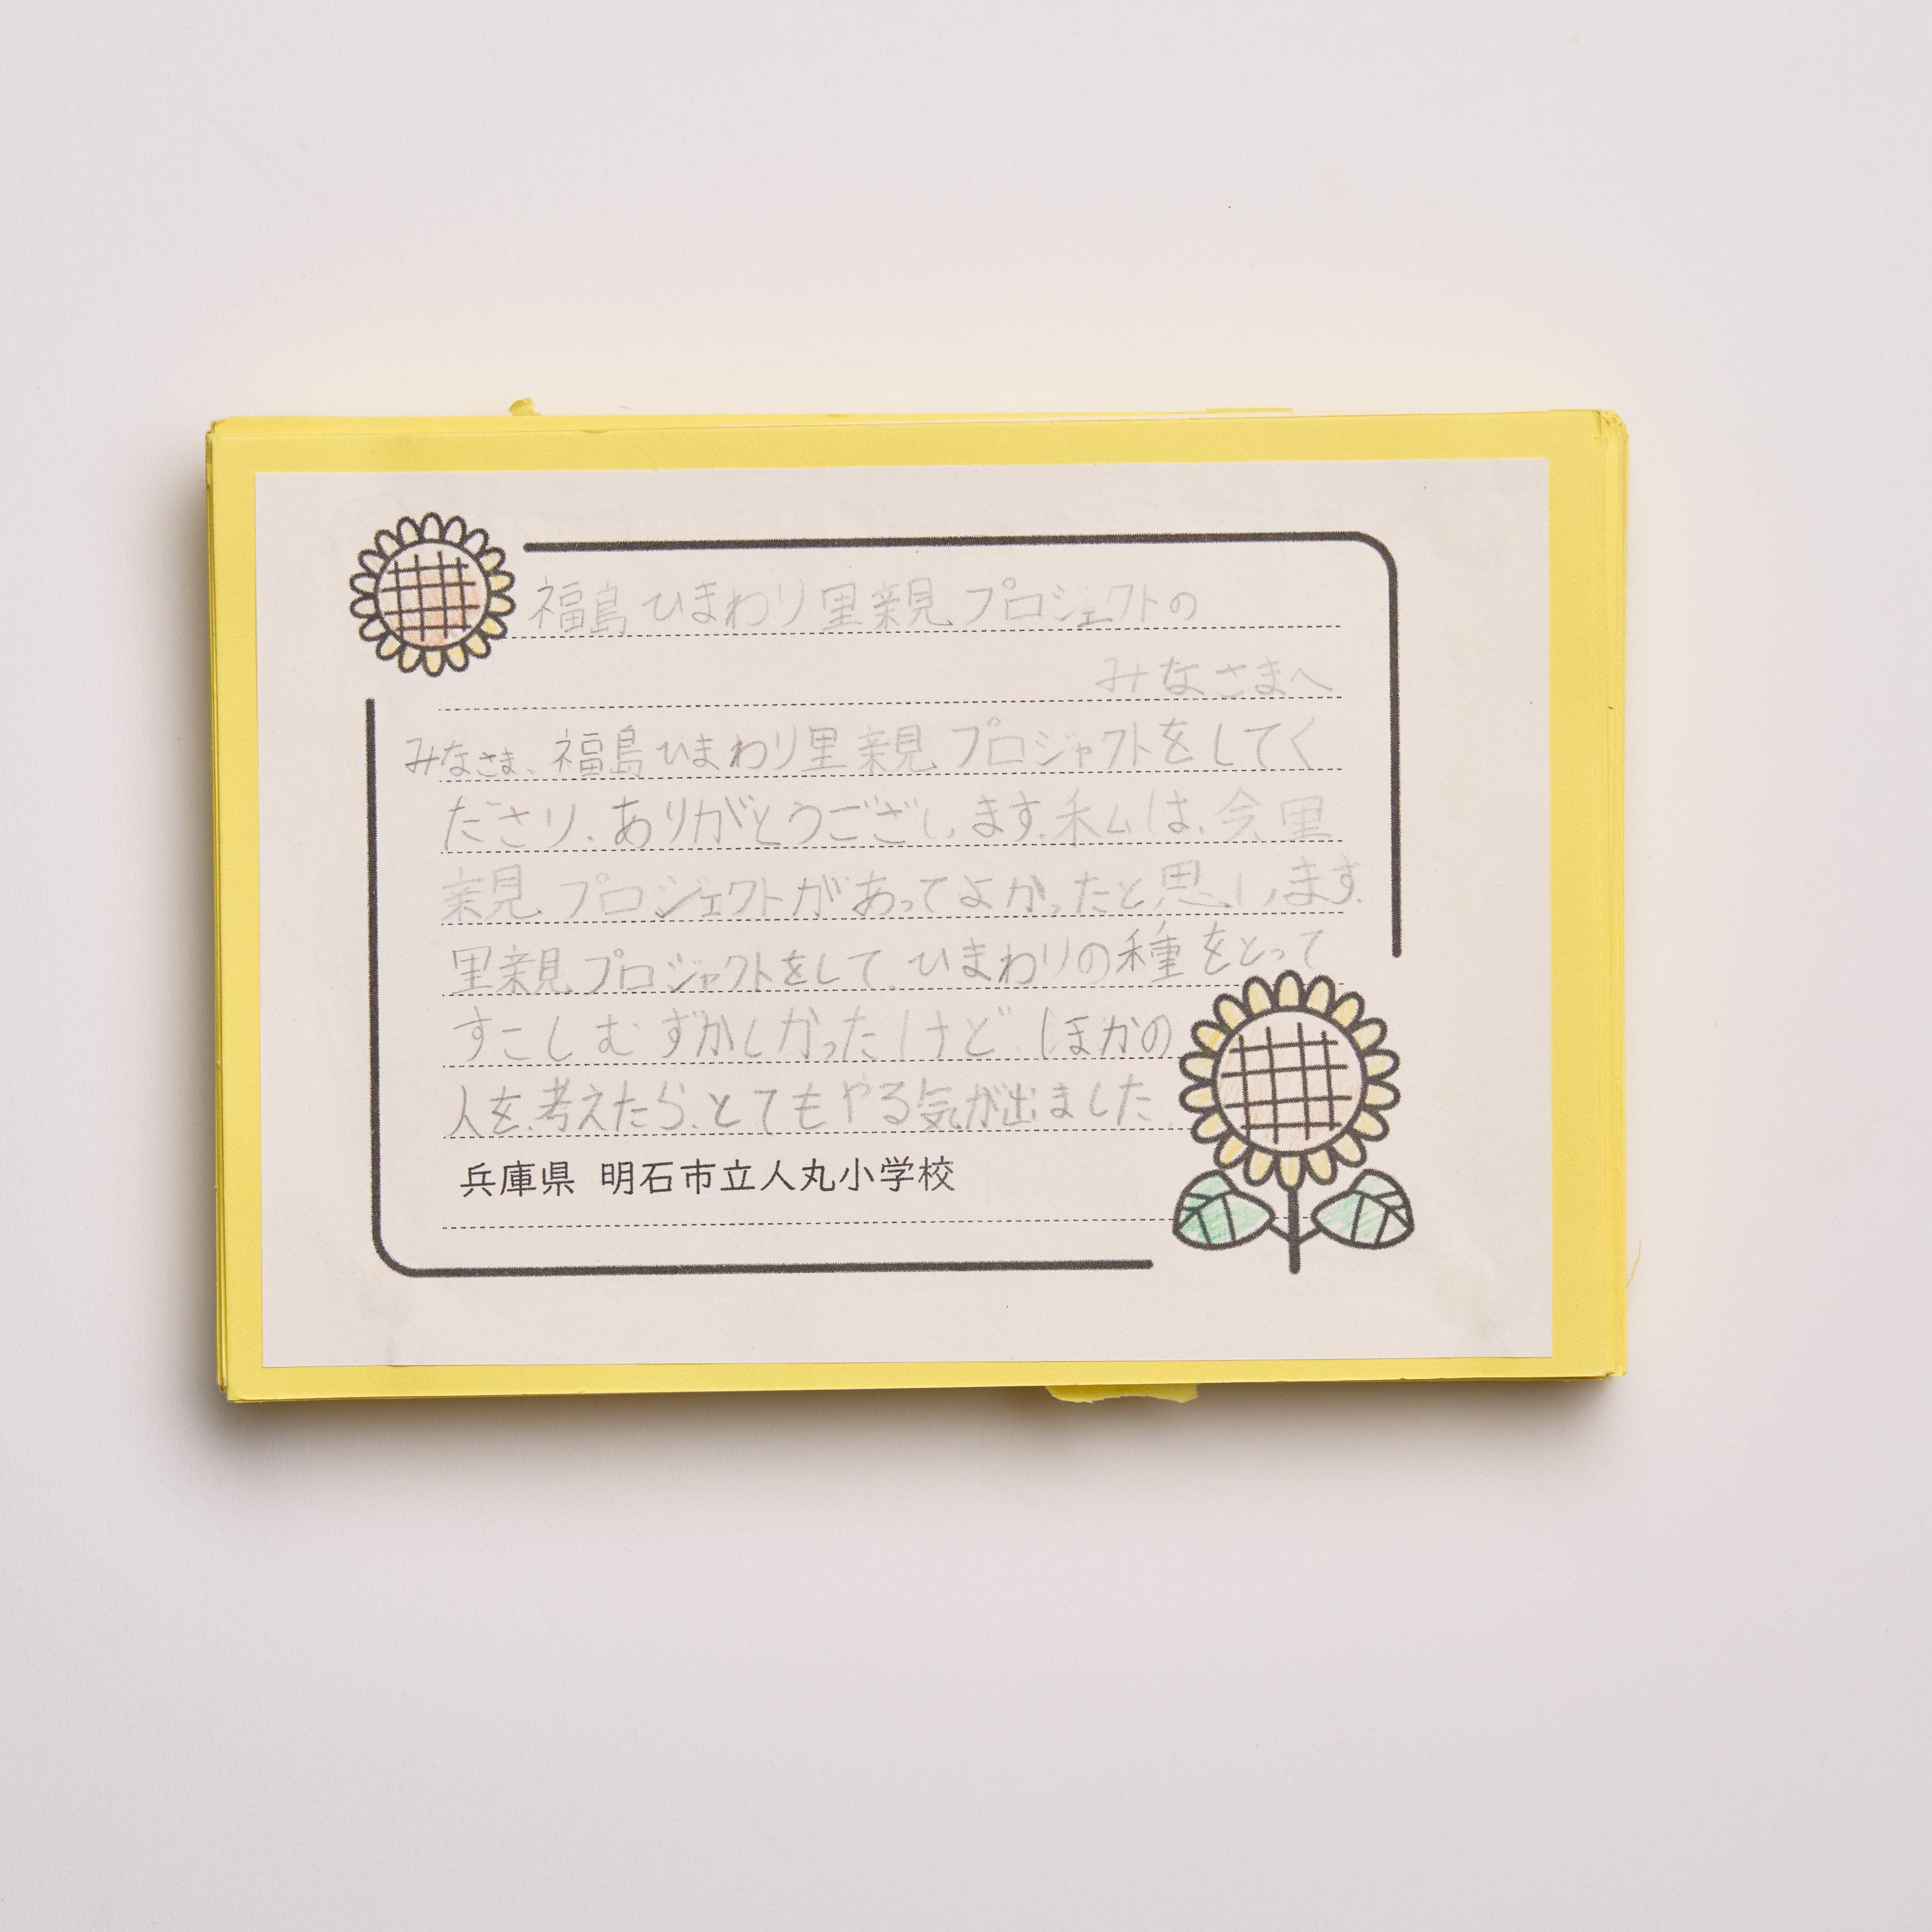 福島ひまわり里親プロジェクトの
みなさまへ
みなさま、福島ひまわり里親プロジャクトをしてく
ださり、ありがとうございます。私は、今里
親プロジェクトがあってよかったと思います。
里親プロジャクトをして、ひまわりの種をとって
すこしむずかしかったけど、ほかの
人を、考えたら、とてもやる気が出ました。
兵庫県 明石市立人丸小学校